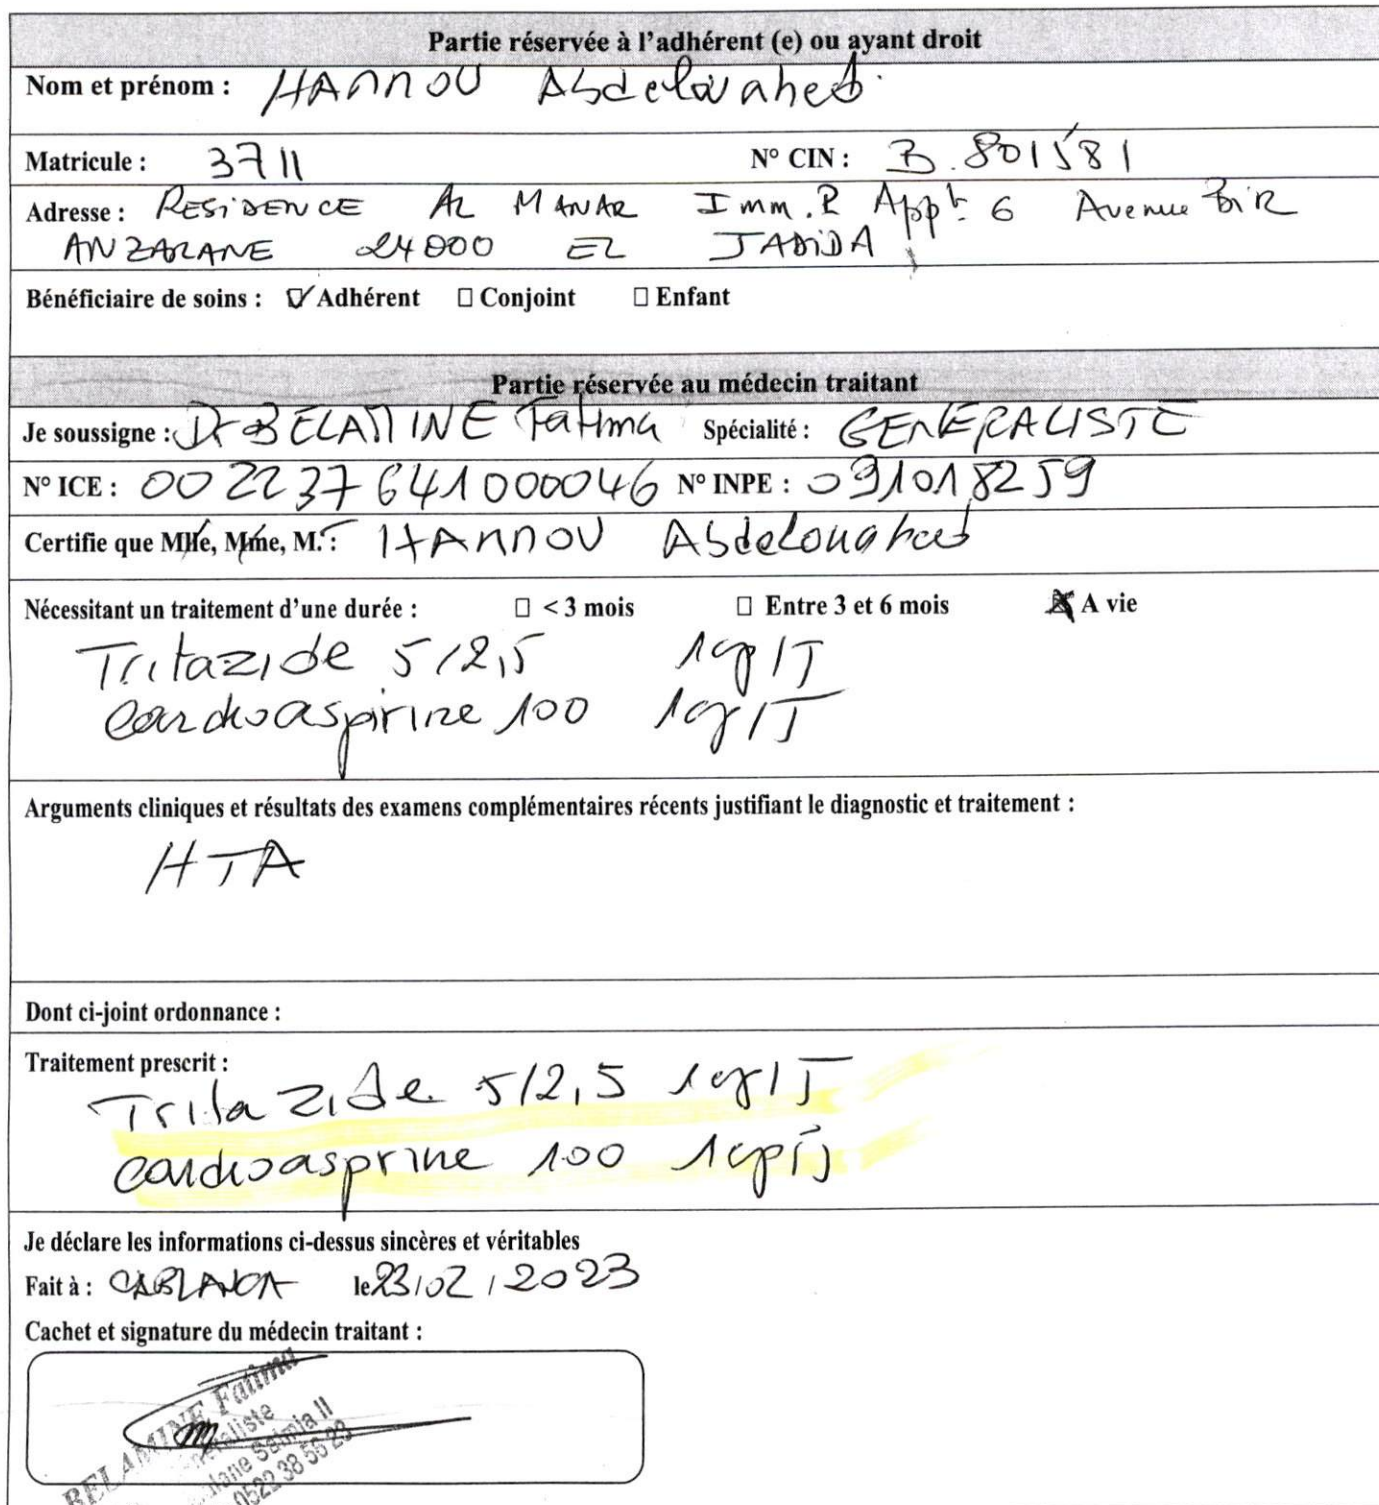 Partie réservée à l'adhérent (e) ou ayant droit
Nom et prénom : HAnnOU Abdelouahed
Matricule : 3711 N° CIN : B.801581
Adresse : RESiDENCE AL MANAR Imm.R Appt 6 Avenue BiR
ANZARANE 24000 EL JADiDA
Bénéficiaire de soins : ☑ Adhérent ☐ Conjoint ☐ Enfant
Partie réservée au médecin traitant
Je soussigne : Dr BELAMINE Fatima Spécialité : GENERALISTE
N° ICE : 002237641000046 N° INPE : 091018259
Certifie que Mlle, Mme, M. : HAnnOU Abdelouahed
Nécessitant un traitement d'une durée : ☐ < 3 mois ☐ Entre 3 et 6 mois ☒ A vie
Tritazide 5/2,5 1cp/J
Cardioaspirine 100 1cp/J
Arguments cliniques et résultats des examens complémentaires récents justifiant le diagnostic et traitement :
HTA
Dont ci-joint ordonnance :
Traitement prescrit :
Tritazide 5/2,5 1cp/J
cardioasprine 100 1cp/j
Je déclare les informations ci-dessus sincères et véritables
Fait à : CABLANCA le 23/02/2023
Cachet et signature du médecin traitant :
BELAMINE Fatima
0522 38 56 23